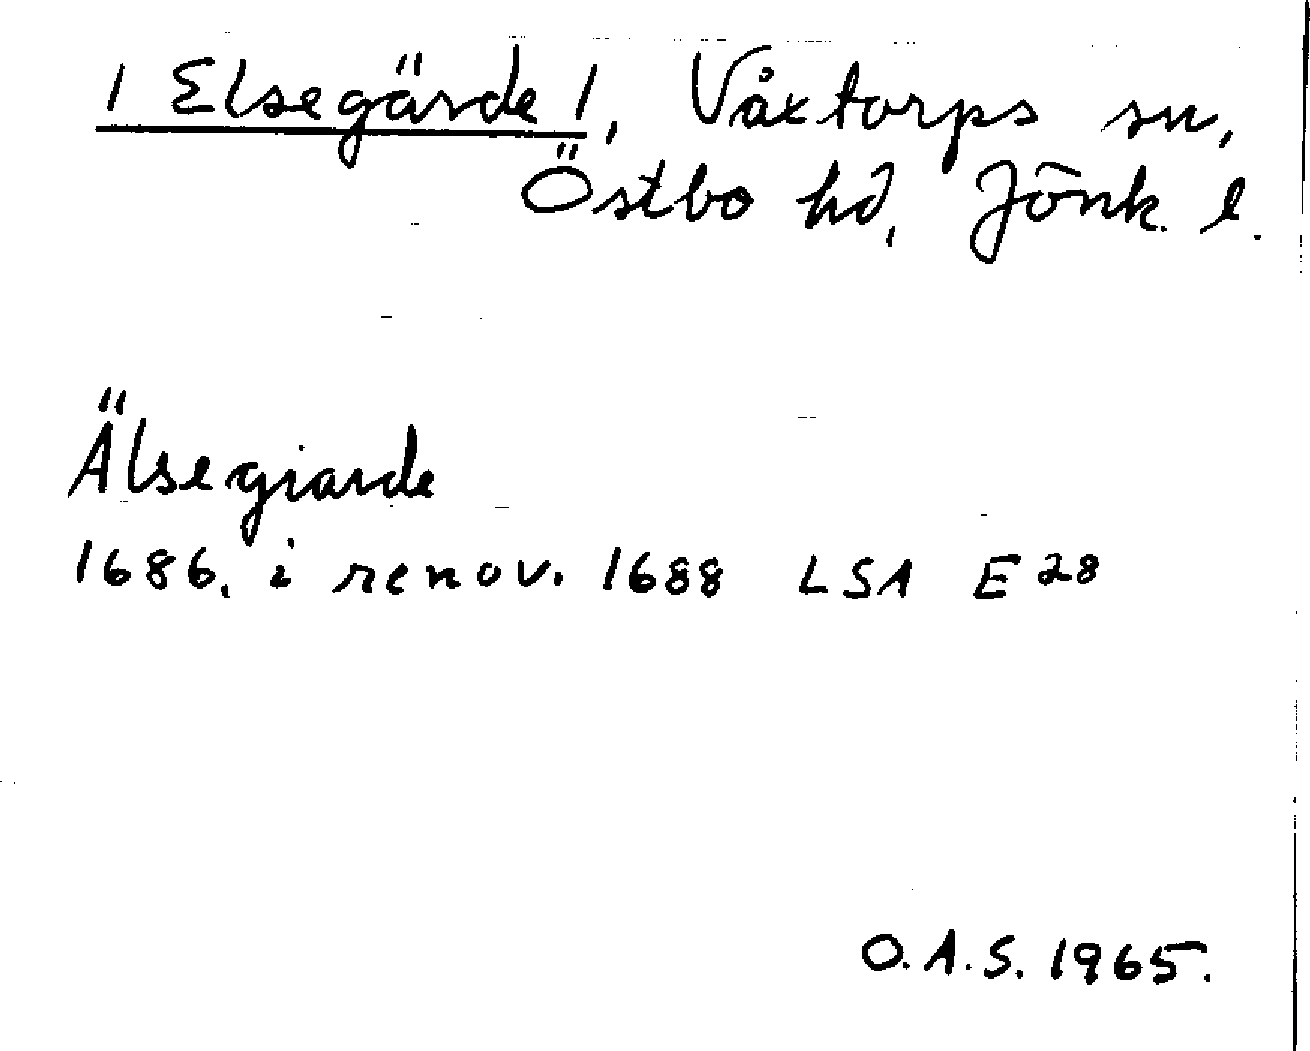 / Elsegärde /, Våxtorps sn,
Östbo hd, Jönk. l.
Älsegiarde
1686, i renov. 1688 LSA E 28
O.A.S. 1965.